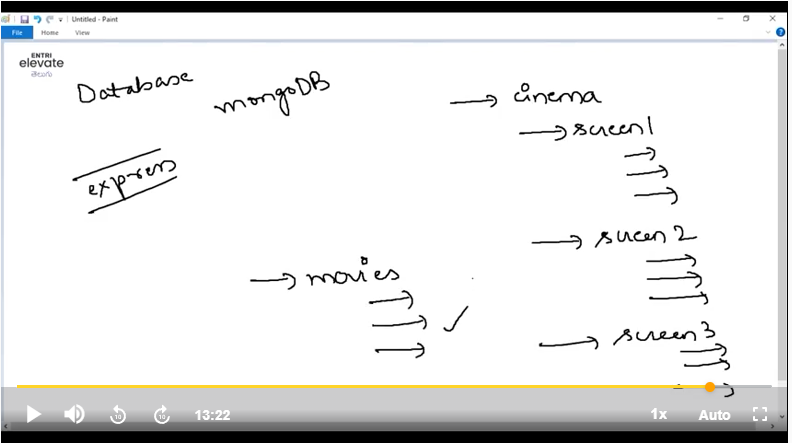 Untitled - Paint
File Home View
ENTRI
elevate
తెలుగు
Database
mongoDB
express
→ movies
→ cinema
→ screen1
→ screen2
→ screen3
10 10 13:22 1x Auto